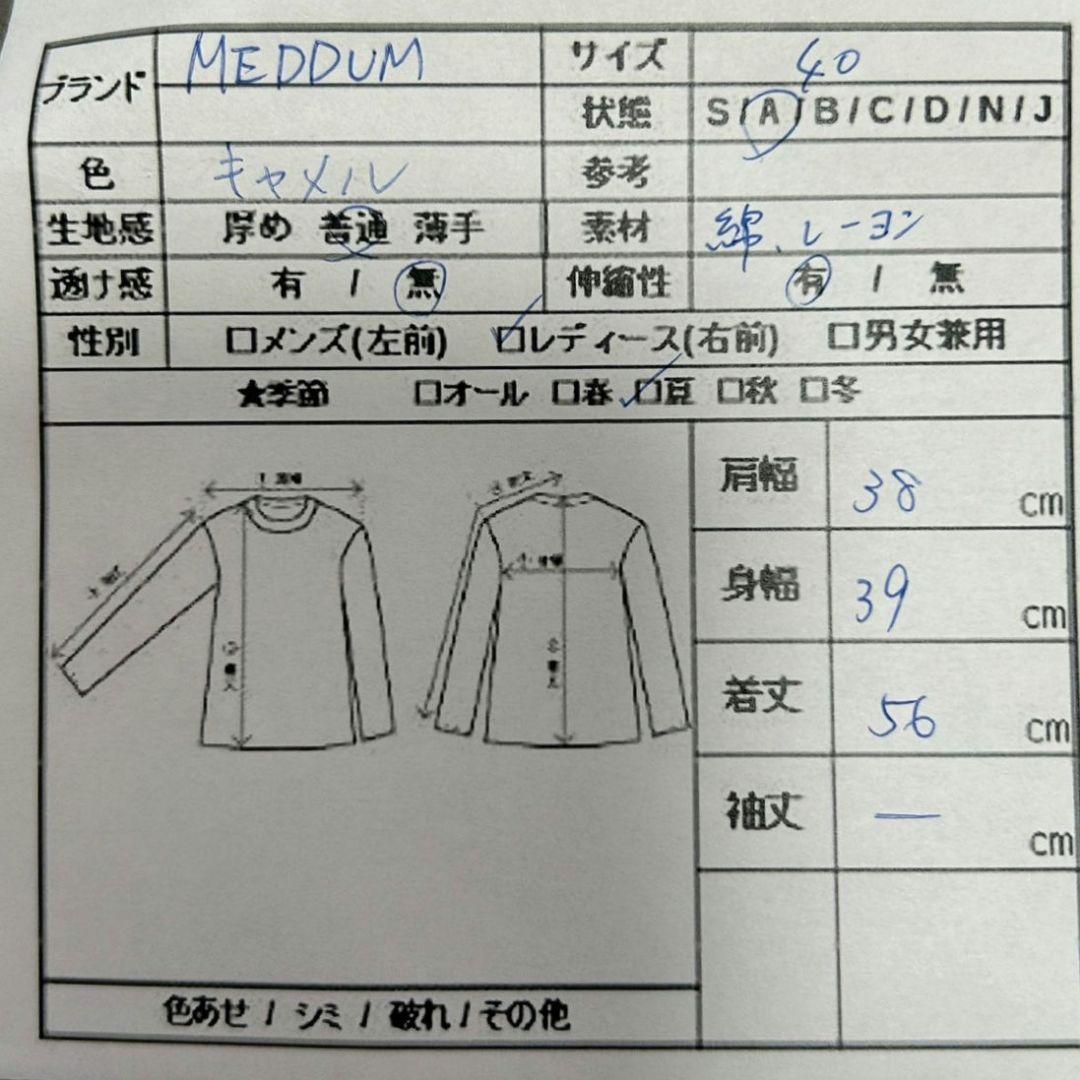 ブランド MEDDUM サイズ 40
状態 S/A/B/C/D/N/J
色 キャメル 参考
生地感 厚め 普通 薄手 素材 綿、レーヨン
透け感 有 / 無 伸縮性 有 / 無
性別 □メンズ(左前) □レディース(右前) □男女兼用
★季節 □オール □春 □夏 □秋 □冬
肩幅 38 cm
身幅 39 cm
着丈 56 cm
袖丈 — cm
色あせ / シミ / 破れ / その他